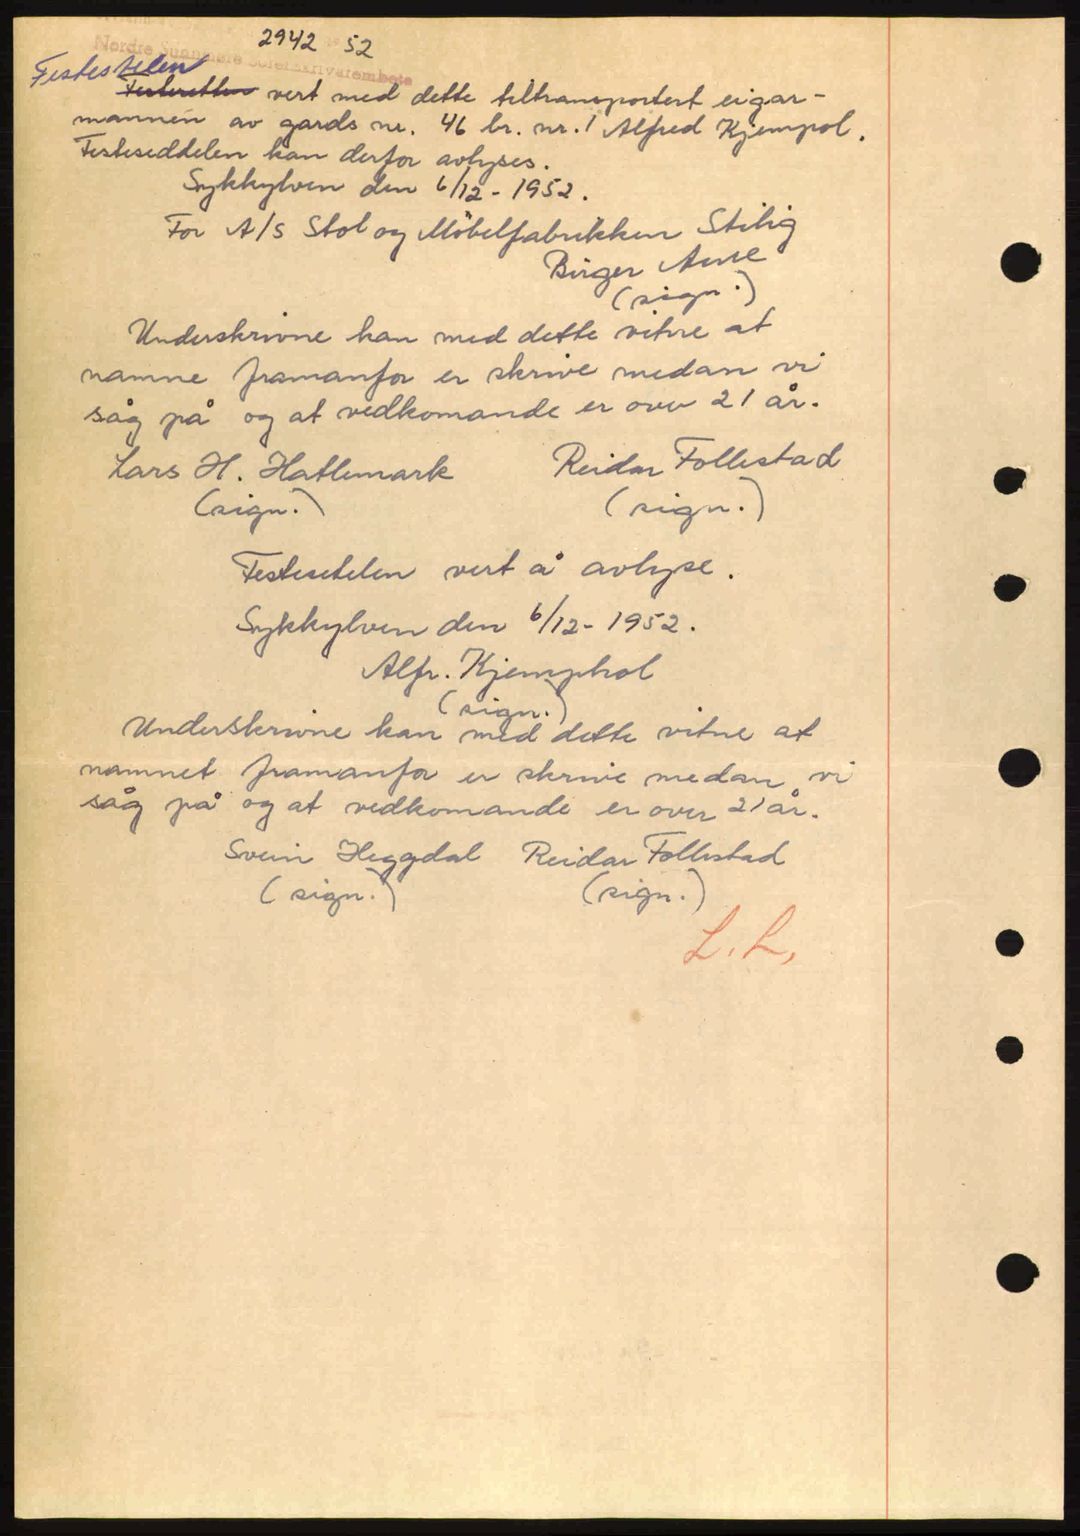 2942 52
Nordre Sunnmøre Sorenskrivarembete
Festesetelen
Festeretten vert med dette tiltransportert eigar-
mannen av gards nr. 46 br. nr. 1 Alfred Kjempol.
Festeseddelen kan derfor avlyses.
Sykkylven den 6/12 - 1952.
For A/S Stol og Möbelfabrikken Stilig
Birger Aure
(sign.)
Underskrivne kan med dette vitne at
namne framanfor er skrive medan vi
såg på og at vedkomande er over 21 år.
Lars H. Hatlemark Reidar Follestad
(sign.) (sign.)
Festesetelen vert å avlyse.
Sykkylven den 6/12 - 1952.
Alfr. Kjemphol
(sign.)
Underskrivne kan med dette vitne at
namnet framanfor er skrive medan vi
såg på og at vedkomande er over 21 år.
Svein Heggdal Reidar Follestad
(sign.) (sign.)
L. L,